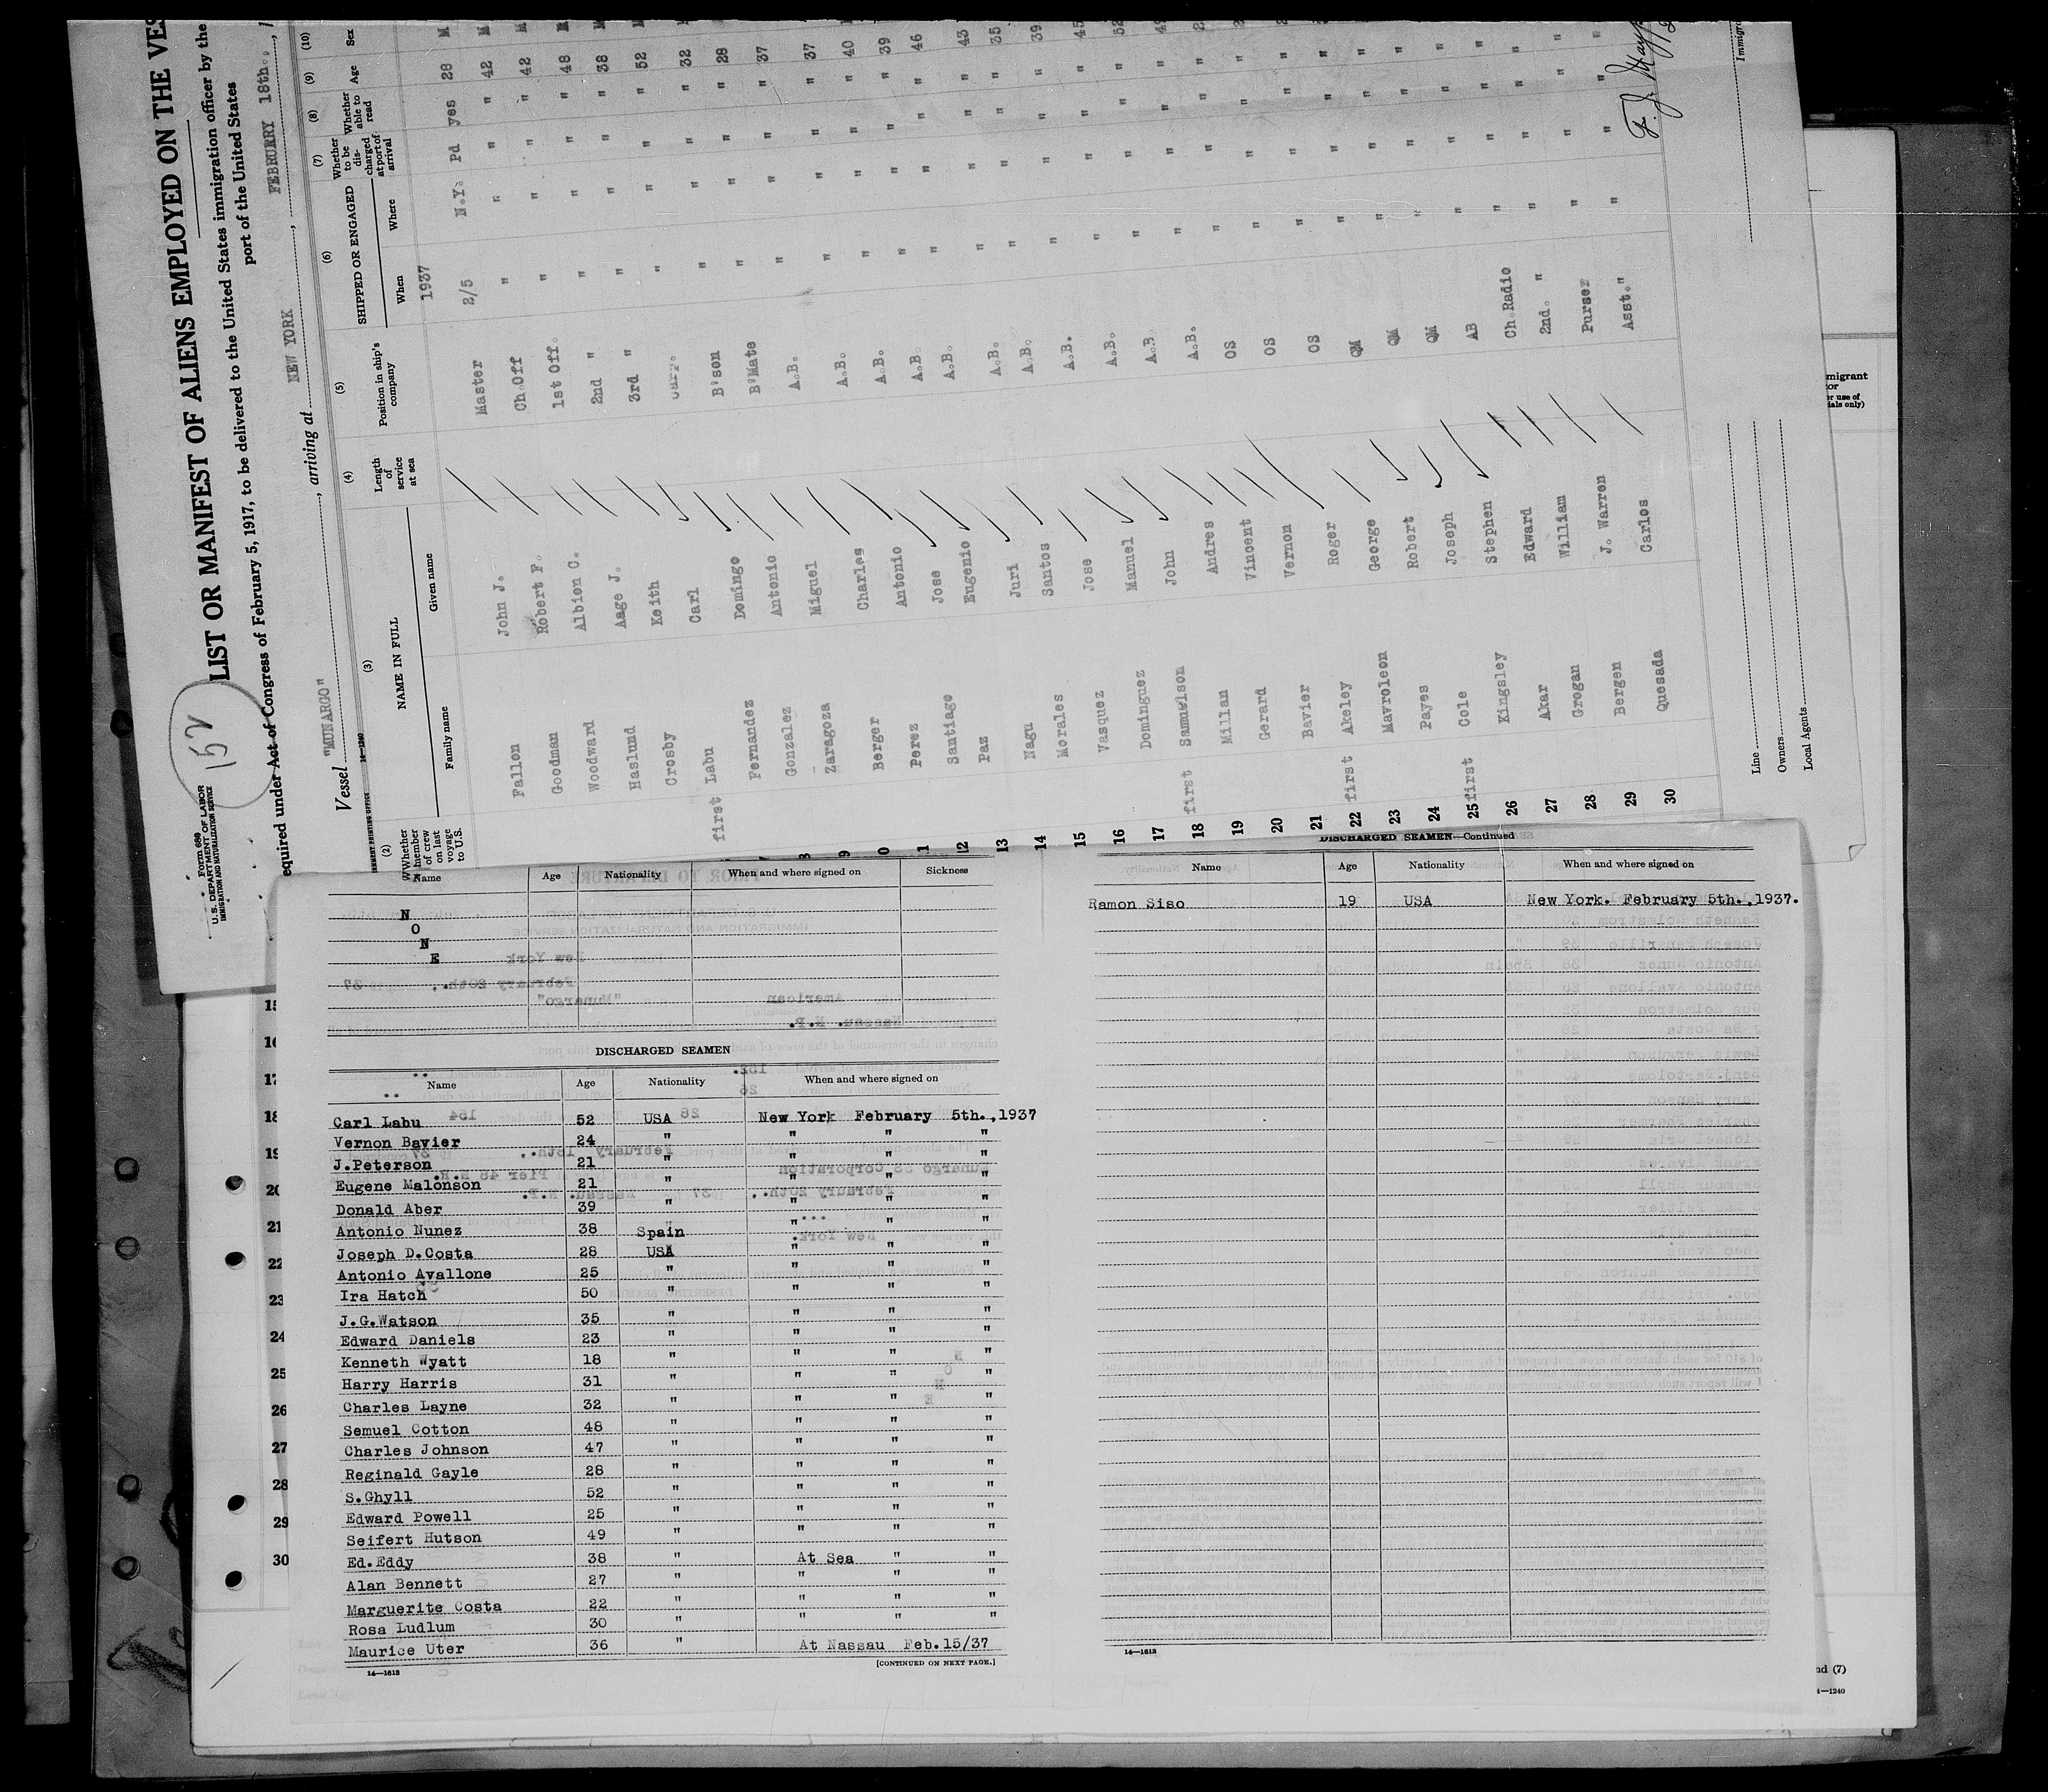 Form 689
U.S. DEPARTMENT OF LABOR
IMMIGRATION AND NATURALIZATION SERVICE
152
LIST OR MANIFEST OF ALIENS EMPLOYED ON THE VES
equired under Act of Congress of February 5, 1917, to be delivered to the United States immigration officer by the
port of the United States
Vessel "MUNARGO", arriving at NEW YORK, FEBRUERY 18th.,
14-1240
(2) (3) (4) (5) (6) (7) (8) (9) (10)
Whether member of crew on last voyage to U.S.
NAME IN FULL
Family name Given name
Length of service at sea
Position in ship's company
SHIPPED OR ENGAGED
When Where
Whether to be discharged at port of arrival
Whether able to read
Age
Sex
1937
Fallon John J. Master 2/5 N.Y. Pd yes 28 M
Goodman Robert F. Ch.Off " " " " 42 M
Woodward Albion C. 1st Off. " " " " 42 M
Haslund Aage J. 2nd " " " " " 48 M
Crosby Keith 3rd " " " " " 38 M
first Labu Carl Carp. " " " " 52
Fernandez Domingo B'son " " " " 32
Gonzalez Antonio B'Mate " " " " 28
Zaragoza Miguel A.B. " " " " 37
Berger Charles A.B. " " " " 37
Perez Antonio A.B. " " " " 40
Santiago Jose A.B. " " " " 39
Paz Eugenio A.B. " " " " 46
13 Nagu Juri A.B. " " " " 43
14 Morales Santos A.B. " " " " 35
15 Vasquez Jose A.B. " " " " 39
16 Dominguez Manuel A.B. " " " " 45
17 first Samuelson John A.B. " " " " 52
18 Millan Andres A.B. " " " "
19 Gerard Vincent OS " " " "
20 Bavier Vernon OS " " " "
21 first Akeley Roger OS " " " "
22 Mavroleon George QM " " " "
23 Payes Robert QM " " " "
24 first Cole Joseph QM " " " "
25 Kingsley Stephen AB " " " "
26 Akar Edward Ch.Radio " " " "
27 Grogan William 2nd. " " " " "
28 Bergen J. Warren Purser " " " "
29 Quesada Carlos Asst." " " " "
30
Line
Owners
Local Agents
Immigr
migrant
or
or use of
ials only)
Name Age Nationality When and where signed on Sickness
N
O
N
E
DISCHARGED SEAMEN
Name Age Nationality When and where signed on
Carl Labu 52 USA New York February 5th.,1937
Vernon Bavier 24 " " " "
J.Peterson 21 " " " "
Eugene Malonson 21 " " " "
Donald Aber 39 " " " "
Antonio Nunez 38 Spain " " "
Joseph D.Costa 28 USA " " "
Antonio Avallone 25 " " " "
Ira Hatch 50 " " " "
J.G.Watson 35 " " " "
Edward Daniels 23 " " " "
Kenneth Wyatt 18 " " " "
Harry Harris 31 " " " "
Charles Layne 32 " " " "
Semuel Cotton 48 " " " "
Charles Johnson 47 " " " "
Reginald Gayle 28 " " " "
S.Ghyll 52 " " " "
Edward Powell 25 " " " "
Seifert Hutson 49 " " " "
Ed.Eddy 38 " At Sea " "
Alan Bennett 27 " " " "
Marguerite Costa 22 " " " "
Rosa Ludlum 30 " " " "
Maurice Uter 36 " At Nassau Feb.15/37
14-1613
[CONTINUED ON NEXT PAGE.]
DISCHARGED SEAMEN—Continued
Name Age Nationality When and where signed on
Ramon Siso 19 USA New York. February 5th.,1937.
14-1613
15
16
17
18
19
20
21
22
23
24
25
26
27
28
29
30
nd (7)
4-1240